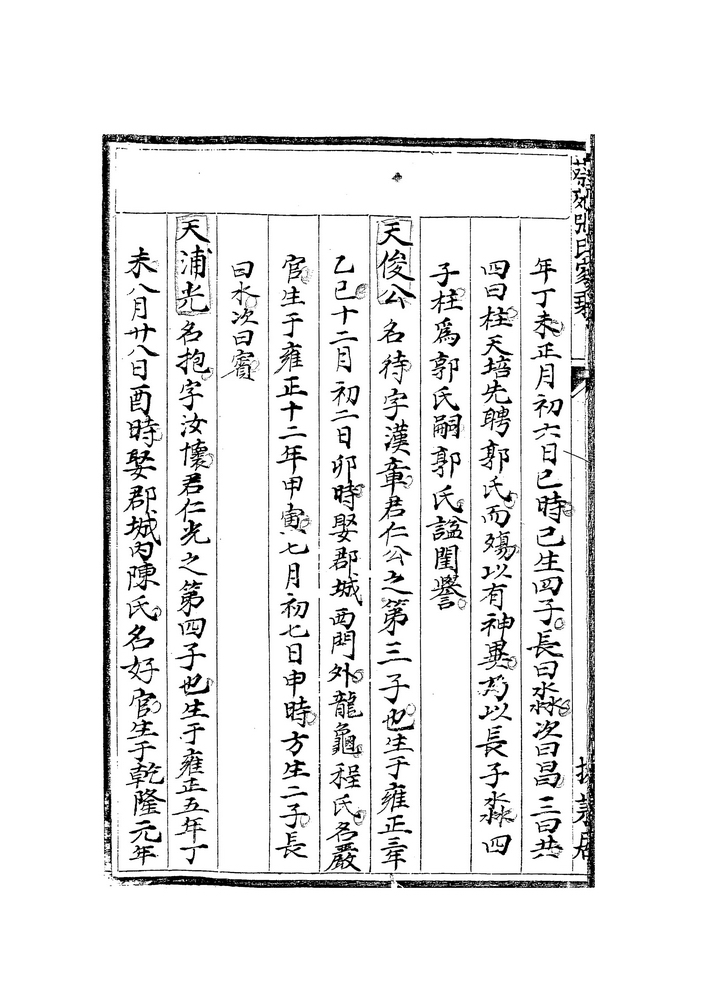 年丁未正月初六日巳時已生四子長曰淼次曰昌三曰共
四曰柱天培先聘郭氏而殤以有神異乃以長子淼四
子柱為郭氏嗣郭氏諡閨譽
天俊公名待字漢章君仁公之第三子也生于雍正三年
乙巳十二月初二日卯時娶郡城西門外龍龜程氏名嚴
官生于雍正十二年甲寅七月初七日申時方生二子長
曰水次曰賓
天浦光名抱字汝懷君仁光之第四子也生于雍正五年丁
未八月廿八日酉時娶郡城內陳氏名好官生于乾隆元年